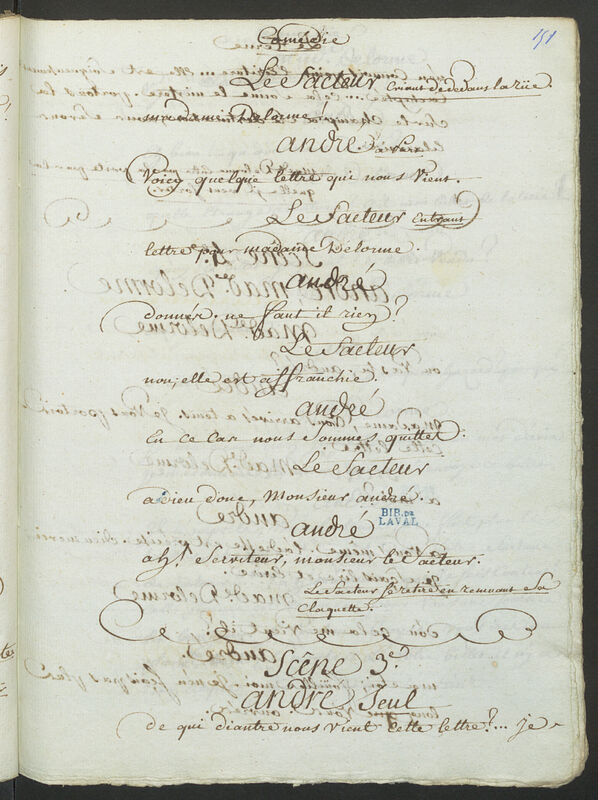 Comédie
151
Le facteur criant dedans la rüe.
madame Delorme,
andré
Voicy quelque lettre qui nous Vient.
Le facteur Entrant
lettre pour madame Delorme.
andré
donnés. ne faut il rien?
Le facteur
non; elle est affranchie.
andré
En ce Cas nous Sommes quittes.
Le facteur
adieu donc, Monsieur andré.
BIB. DE
LAVAL
andré
ah! Serviteur, monsieur le facteur.
Le facteur se retire en remuant Sa
Claquette.
Scêne 3e.
andré Seul
de qui diantre nous vient cette lettre?... je